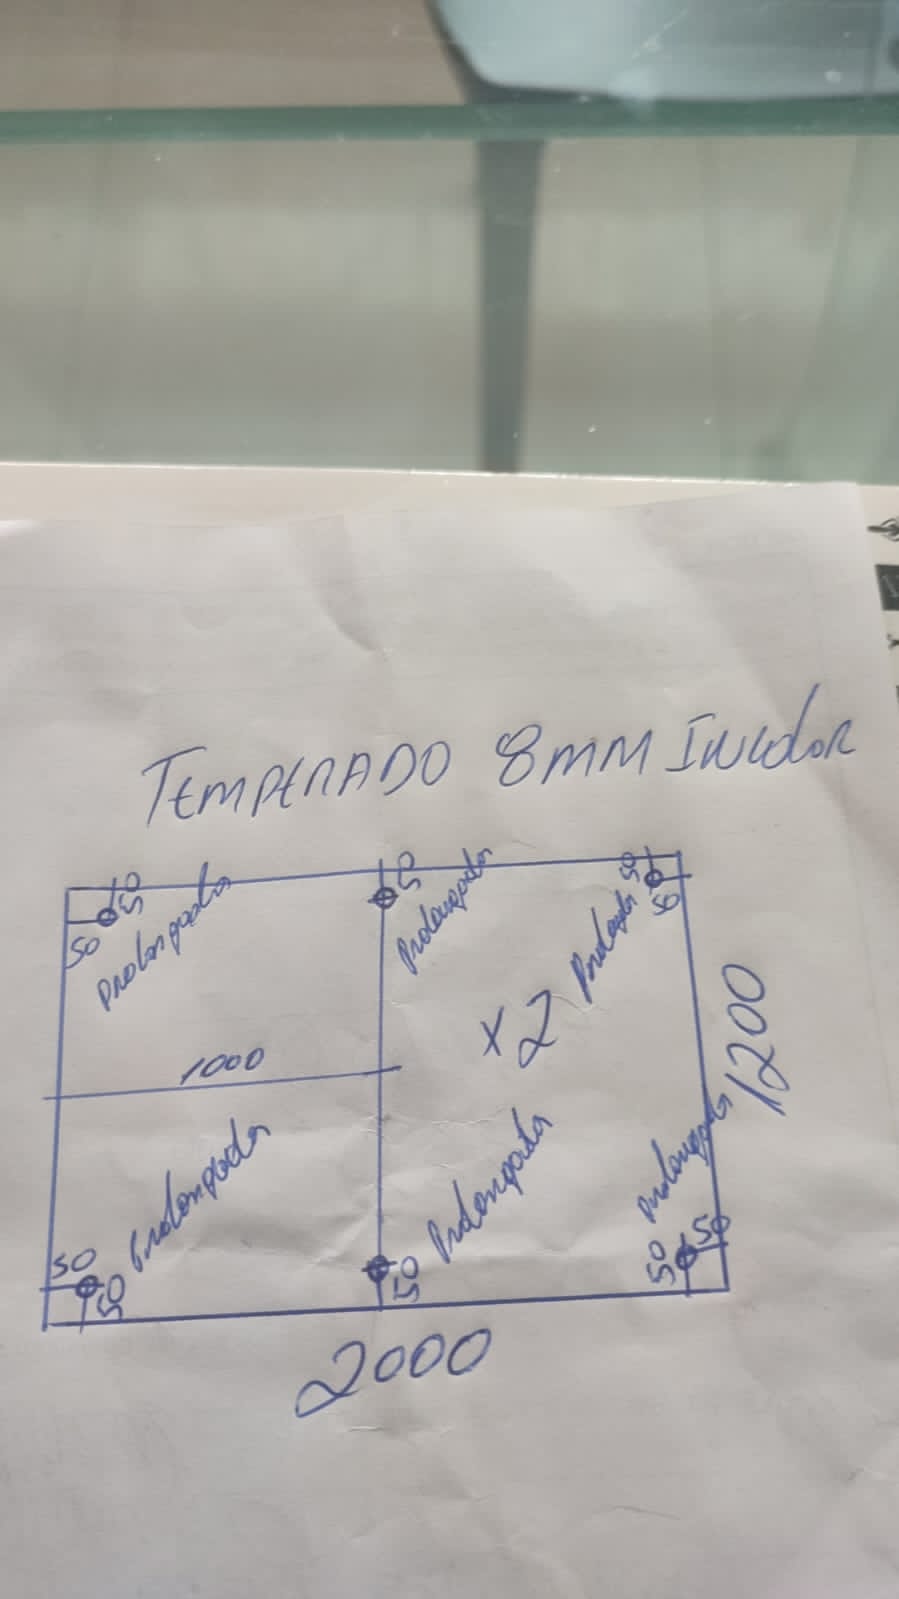 TEMPERADO 8MM INCOLOR
50
50
Prolongador
50
Prolongador
50
50
Prolongador
x2
1000
1200
50
50
Prolongador
50
Prolongador
50
50
Prolongador
2000